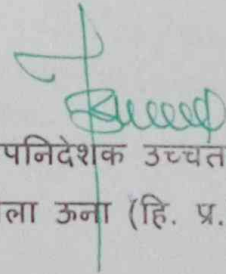 पनिदेशक उच्चत
ला ऊना (हि. प्र.